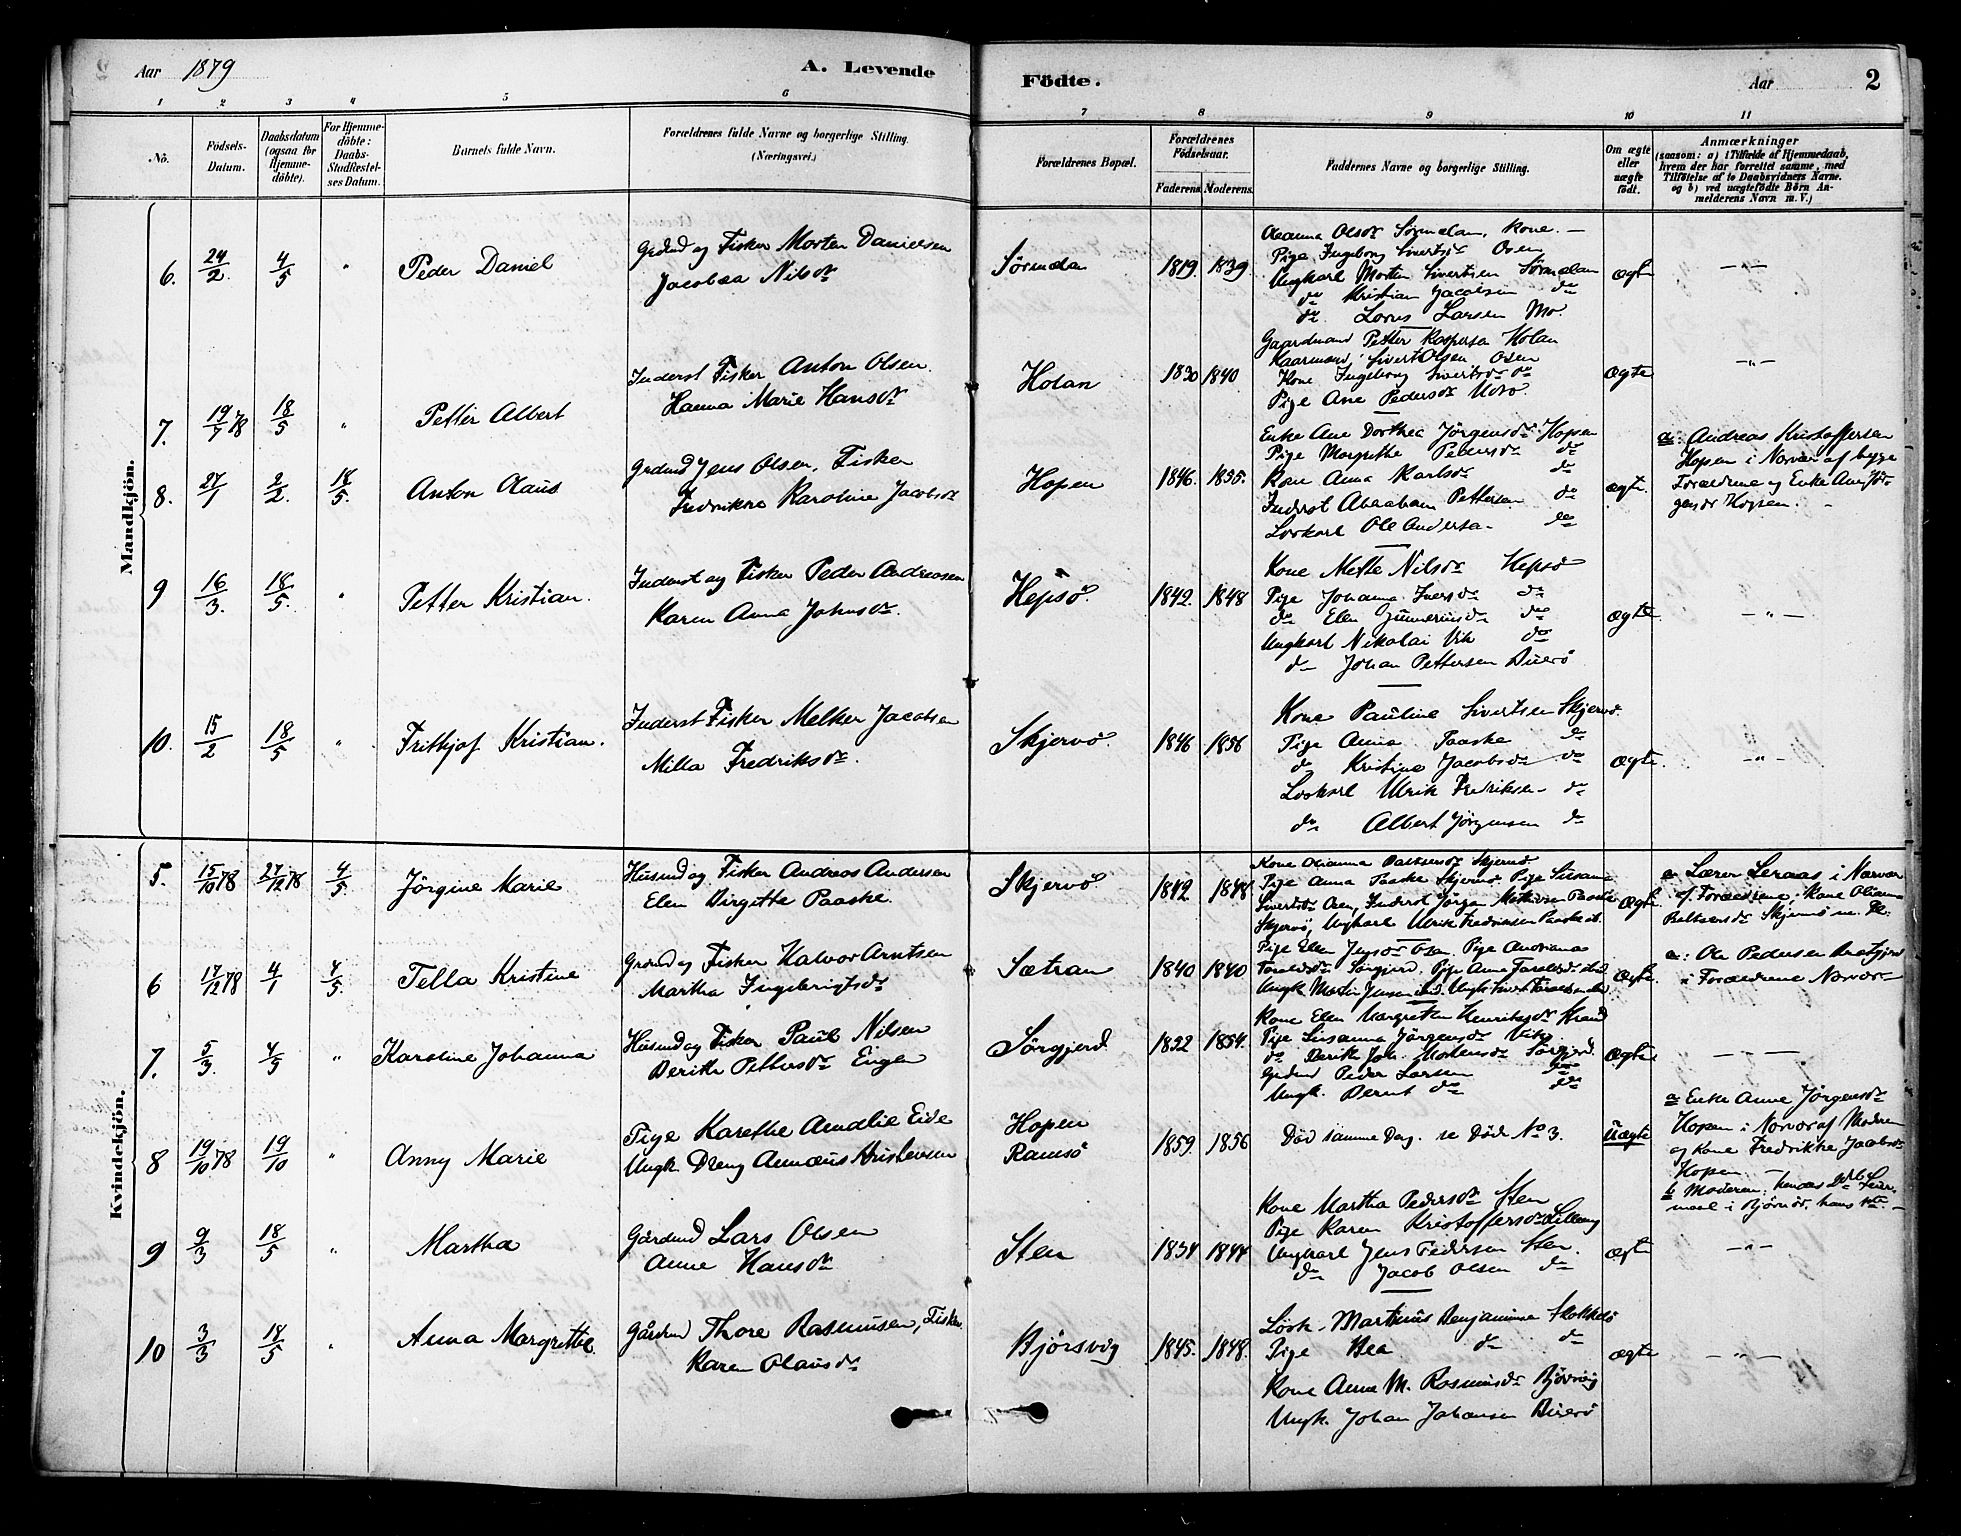 Aar 1879
A. Levende
Födte.
Aar
2
1 2 3 4 5 6 7 8 9 10 11
No.
Födsels-Datum.
Daabsdatum (ogsaa for Hjemme-döbte).
For Hjemme-döbte: Daabs-Stadfæstel-ses Datum.
Barnets fulde Navn.
Forældrenes fulde Navne og borgerlige Stilling.
(Næringsvei.)
Forældrenes Bopæl.
Forældrenes Födselsaar.
Faderens. Moderens.
Faddernes Navne og borgerlige Stilling.
Om ægte eller uægte födt.
Anmærkninger
(saasom: a) i Tilfælde af Hjemmedaab,
hvem der har forrettet samme, med
Tilföielse af to Daabsvidners Navne.
og b) ved uægtefödte Börn An-
melderens Navn m.V.)
Mandkjön.
6. 24/2 4/5 " Peder Daniel
Grdmd og Fisker Morten Danielsen
Jacobæa Nilsdr
Sörmelan 1819. 1839.
Oleanna Olsdr Sörmelan, Kone. —
Pige Ingeborg Sivertsdr Osen
Ungkarl Morten Sivertsen Sörmelan
do Kristian Jacobsen do
do Lorns Larsen Mo.
ægte — " —
7. 19/7 78 18/5 " Petter Albert
Inderst Fisker Anton Olsen.
Hanna Marie Hansdr
Holan 1830 1840
Gaardmand Petter Kaspersen Holan
Kaarmand Sivert Olsen Osen
Kone Ingeborg Sivertsdr do
Pige Ane Pedersdr
ægte — " —
8. 27/1 2/2. 18/5. Anton Olaus
Grdmd Jens Olsen, Fisker
Fredrikke Karoline Jacobsdr
Hopen 1846. 1855.
Enke Ane Dorthea Jörgensdr Hopen
Pige Margrethe Pedersdr do
Kone Anna Karlsdr do
Inderst Abraham Pettersen do
Löskarl Ole Andersen do
ægte.
a. Andreas Kristoffersen
Hopen i Nærvær af begge
Forældrene og Enke Ane Jör-
gensdr Hopen. —
9 16/3. 18/5. " Petter Kristian.
Inderst og Fisker Peder Andreasen
Karen Anna Johnsdr.
Hepsö. 1842. 1848
Kone Mette Nilsdr Hepsö
Pige Johanna Iversdr do
do Elen Gunneriusdr do
Ungkarl Nikolai Vik do
do Johan Pettersen Buerö
ægte. — " —
10. 15/2 18/5 " Frithjof Kristian.
Inderst Fisker Melker Jacobsen
Milla Fredriksdr.
Skjervö. 1846 1856
Kone Pauline Sivertsen Skjervö.
Pige Anna Paaske do
do Kristine Jacobsdr do
Löskarl Ulrik Fredriksen do
do Albert Jörgensen do
ægte. — " —
Kvindekjön.
5. 15/10 78 27/12 78 4/5 Jörgine Marie
Husmd og Fisker Andreas Andersen
Elen Birgitte Paaske.
Skjervö 1842 1848
Kone Olianna Baltsersdr Skjervö.
Pige Anna Paaske Skjervö Pige Susanna
Sivertsdr Osen, Inderst Jörgen Mathisen Paaske
Skjervö, Ungkarl Ulrik Fredriksen Paaske do.
Ægte
a. Lærer Leraas i Nærvær
af Forældrene, Kone Olianna
Baltsersdr Skjervö m. Fl.
6 17/12 78 4/1 4/5. Tella Kristine
Grdmd og Fisker Halvor Arntsen
Martha Ingebrigtsdr
Sætran 1840 1840
Pige Ellen Jensdr Osen, Pige Andriana
Toraldsdr Sörgjerd, Pige Anne Toraldsdr ibid
Ungk. Martin Jensen ibid. Ungk. Sivert Toraldsen ibid
Ægte.
a: Ole Pedersen
i Forældrene Nærvær —
7. 5/3. 4/5 " Karoline Johanna
Husmd og Fisker Paul Nilsen
Berith Pettersdr Enge
Sörgjerd. 1832 1854.
Kone Elen Margrethe Henriksdr Strand
Pige Susanna Jörgensdr Vik
do Berith Joh. Mortensdr Sörgjerd.
Grdmd Peder Larsen do
Ungk. Bernt do do
Ægte. — — —
8 19/10 78 19/10 " Anny Marie
Pige Karethe Amalie Eide
Ungk. Dreng Annæus Kristensen
Hopen
Ramsö
1859. 1856
Död samme Dag. se Döde No 3.
Uægte
a Enke Anne Jörgensdr
Hopen i Nærvær af Moderen
og Kone Fredrikke Jacobsdr
Hopen. —
b Moderen. hendes 2det Leier-
maal i Björnör, hans 1ste. —
9 9/3 18/5 " Martha
Gårdmd Lars Olsen
Anne Hansdr
Sten 1834 1844
Kone Martha Pedersdr Sten
Pige Karen Kristoffersdr
Ungkarl Jens Pedersen Sten.
do Jacob Olsen do
ægte — " —
10 3/3 18/5 " Anna Margrethe
Gårdmd Thore Rasmusen, Fisker
Karen Olausdr
Björsvig 1845. 1848.
Lösk. Martinus Benjaminsen Stokkö
Pige Bea do do
Kone Anne M. Rasmusdr Björsvig
Ungk. Johan Johansen Buerö
ægte — " —